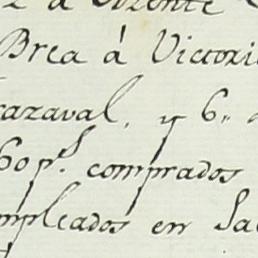 2 á Vizente
Brea á Victori
razaval, y 6,,
60 p.s comprados
mpleados en Sa